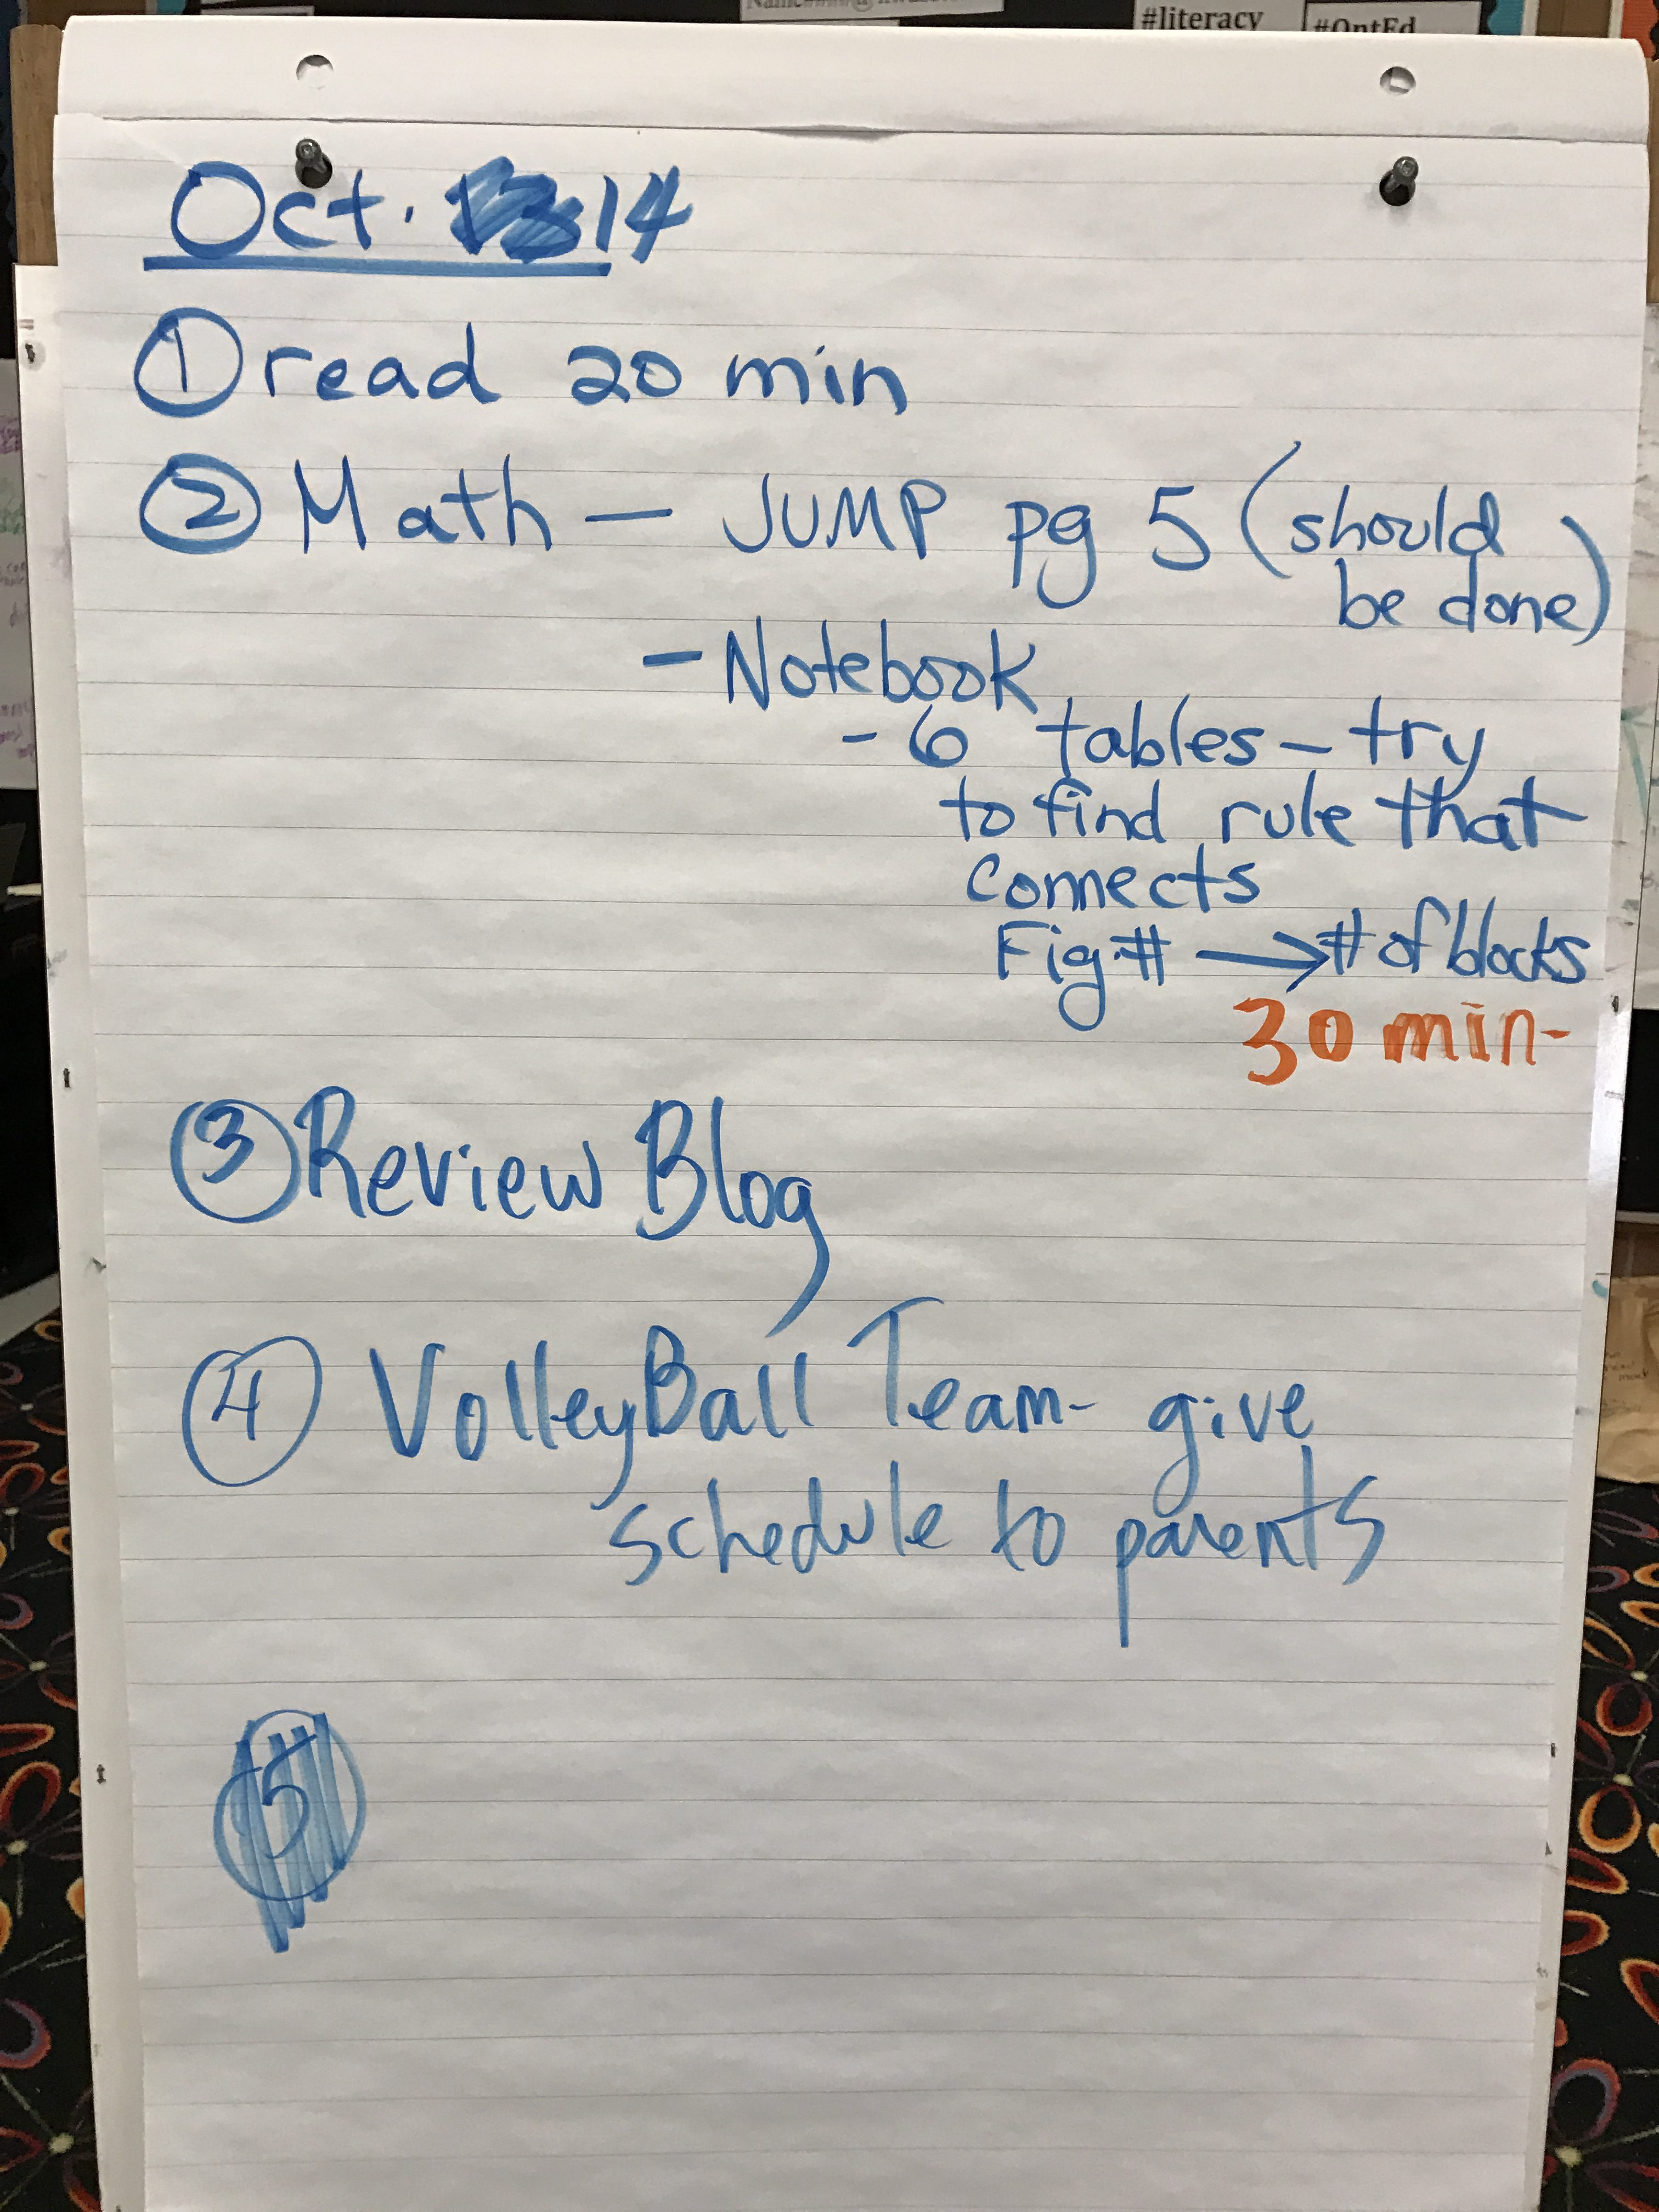 #literacy
#OptEd
Oct. 14
① read 20 min
② Math — JUMP pg 5 (should
be done)
- Notebook
- 6 tables - try
to find rule that
connects
Fig. # → # of blocks
30 min-
③ Review Blog
④ VolleyBall Team- give
schedule to parents
⑤